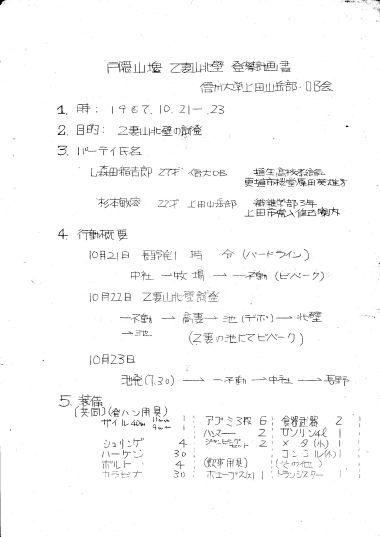 戸隠山塊 乙妻山北壁 登攀計画書
信州大学上田山岳部・OB会
1. 時: 1967.10.21—.23
2. 目的: 乙妻山北壁の試登
3. パーティ氏名
L 森田稲吉郎 27才 信大OB
更埴市桜堂原田英雄方
杉本敏宏 22才 上田山岳部 繊維学部3年
上田市常入
4. 行動概要
10月21日 長野発1時 (バードライン)
中社 → 牧場 → 一不動 (ビバーク)
10月22日 乙妻山北壁試登
一不動 → 高妻 → 池 (デポ) → 北壁
→ 池 (乙妻の池にてビバーク)
10月23日
池発(7.30) → 一不動 → 中社 → 長野
5. 装備
(共同)(登ハン用具)
ザイル 40m 11mm 1 アブミ3段 6 食器武器 2
9mm 1 ハンマー 2 ガソリン4ℓ 1
シュリンゲ 4 ジャンピングセット 2 メタ(小) 1
ハーケン 30 コンロ(小) 1
ボルト 4 (飲事用具) (その他)
カラビナ 30 ホエーブス(大) 1 トランジスター 1